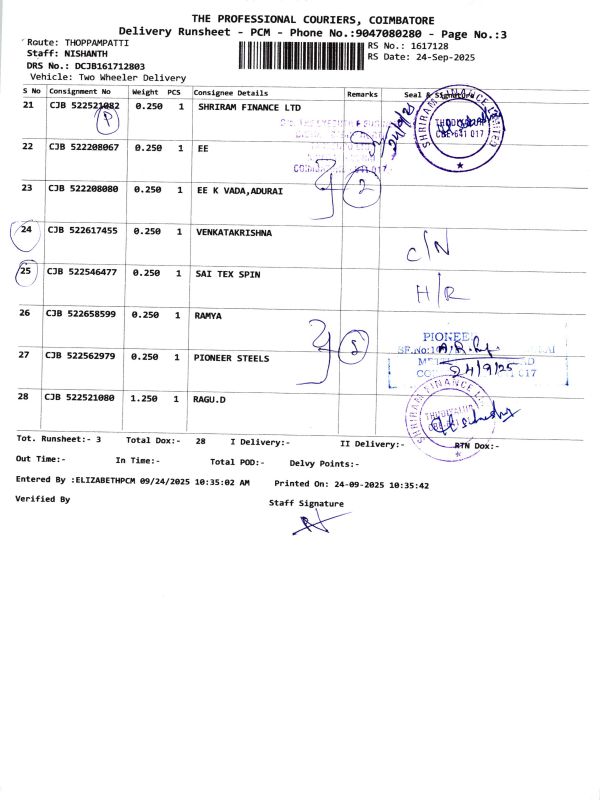 THE PROFESSIONAL COURIERS, COIMBATORE
Delivery Runsheet - PCM - Phone No.:9047080280 - Page No.:3
Route: THOPPAMPATTI RS No.: 1617128
Staff: NISHANTH RS Date: 24-Sep-2025
DRS No.: DCJB161712803
Vehicle: Two Wheeler Delivery
S No Consignment No Weight PCS Consignee Details Remarks Seal & Signature
21 CJB 522521082 0.250 1 SHRIRAM FINANCE LTD
P
24/9/25
SHRIRAM FINANCE LIMITED
THUDIYALUR
CBE-641 017
22 CJB 522208067 0.250 1 EE
23 CJB 522208080 0.250 1 EE K VADA,ADURAI
2
24 CJB 522617455 0.250 1 VENKATAKRISHNA
C/N
25 CJB 522546477 0.250 1 SAI TEX SPIN
H/R
26 CJB 522658599 0.250 1 RAMYA
PIONEER
27 CJB 522562979 0.250 1 PIONEER STEELS
24/9/25
28 CJB 522521080 1.250 1 RAGU.D
SHRIRAM FINANCE
THUDIYALUR
Tot. Runsheet:- 3 Total Dox:- 28 I Delivery:- II Delivery:- RTN Dox:-
Out Time:- In Time:- Total POD:- Delvy Points:-
Entered By :ELIZABETHPCM 09/24/2025 10:35:02 AM Printed On: 24-09-2025 10:35:42
Verified By Staff Signature